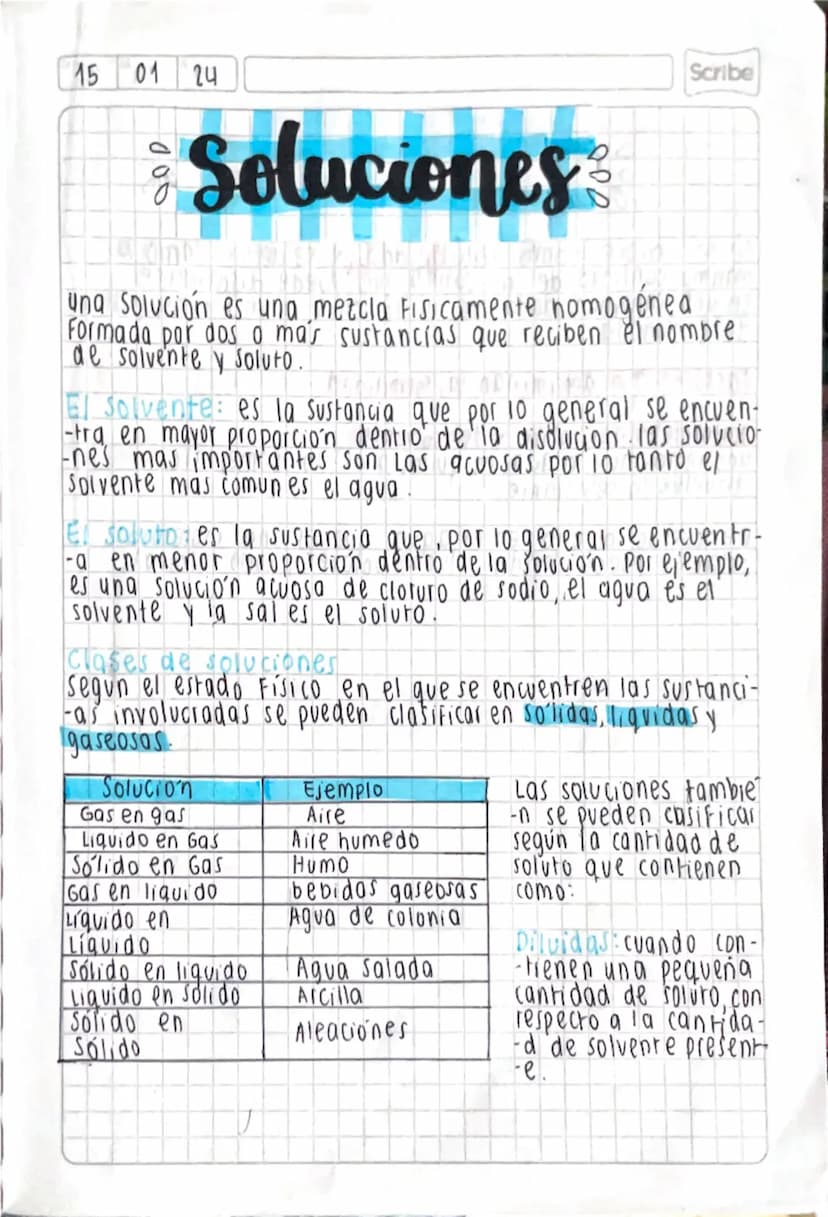 15 01 24
Scribe
Soluciones
una solución es una mezcla Fisicamente homogénea
Formada por dos o más sustancias que reciben el nombre
de solvente y soluto.
El solvente: es la sustancia que por lo general se encuen-
-tra en mayor proporción dentro de la disolucion. las solucio-
-nes mas importantes son Las acuosas por lo tanto el
solvente mas comun es el agua.
El soluto: es la sustancia que, por lo general se encuentr-
-a en menor proporción dentro de la solución. Por ejemplo,
es una solución acuosa de cloruro de sodio, el agua es el
solvente y la sal es el soluto.
Clases de soluciones
segun el estado Físico en el que se encuentren las sustanci-
-as involucradas se pueden clasificar en sólidas, liquidas y
gaseosas.
Solución Ejemplo
Gas en gas Aire
Liquido en Gas Aire humedo
Sólido en Gas Humo
Gas en liquido bebidas gaseosas
Líquido en Agua de colonia
Líquido
Sólido en liquido Agua Salada
Liquido en sólido Arcilla
Sólido en Aleaciónes
Sólido
Las soluciones tambié
-n se pueden casificar
según la cantidad de
soluto que contienen
como:
Diluidas: cuando con-
-tienen una pequeña
cantidad de soluto, con
respecto a la cantida-
-d de solvente present-
-e.